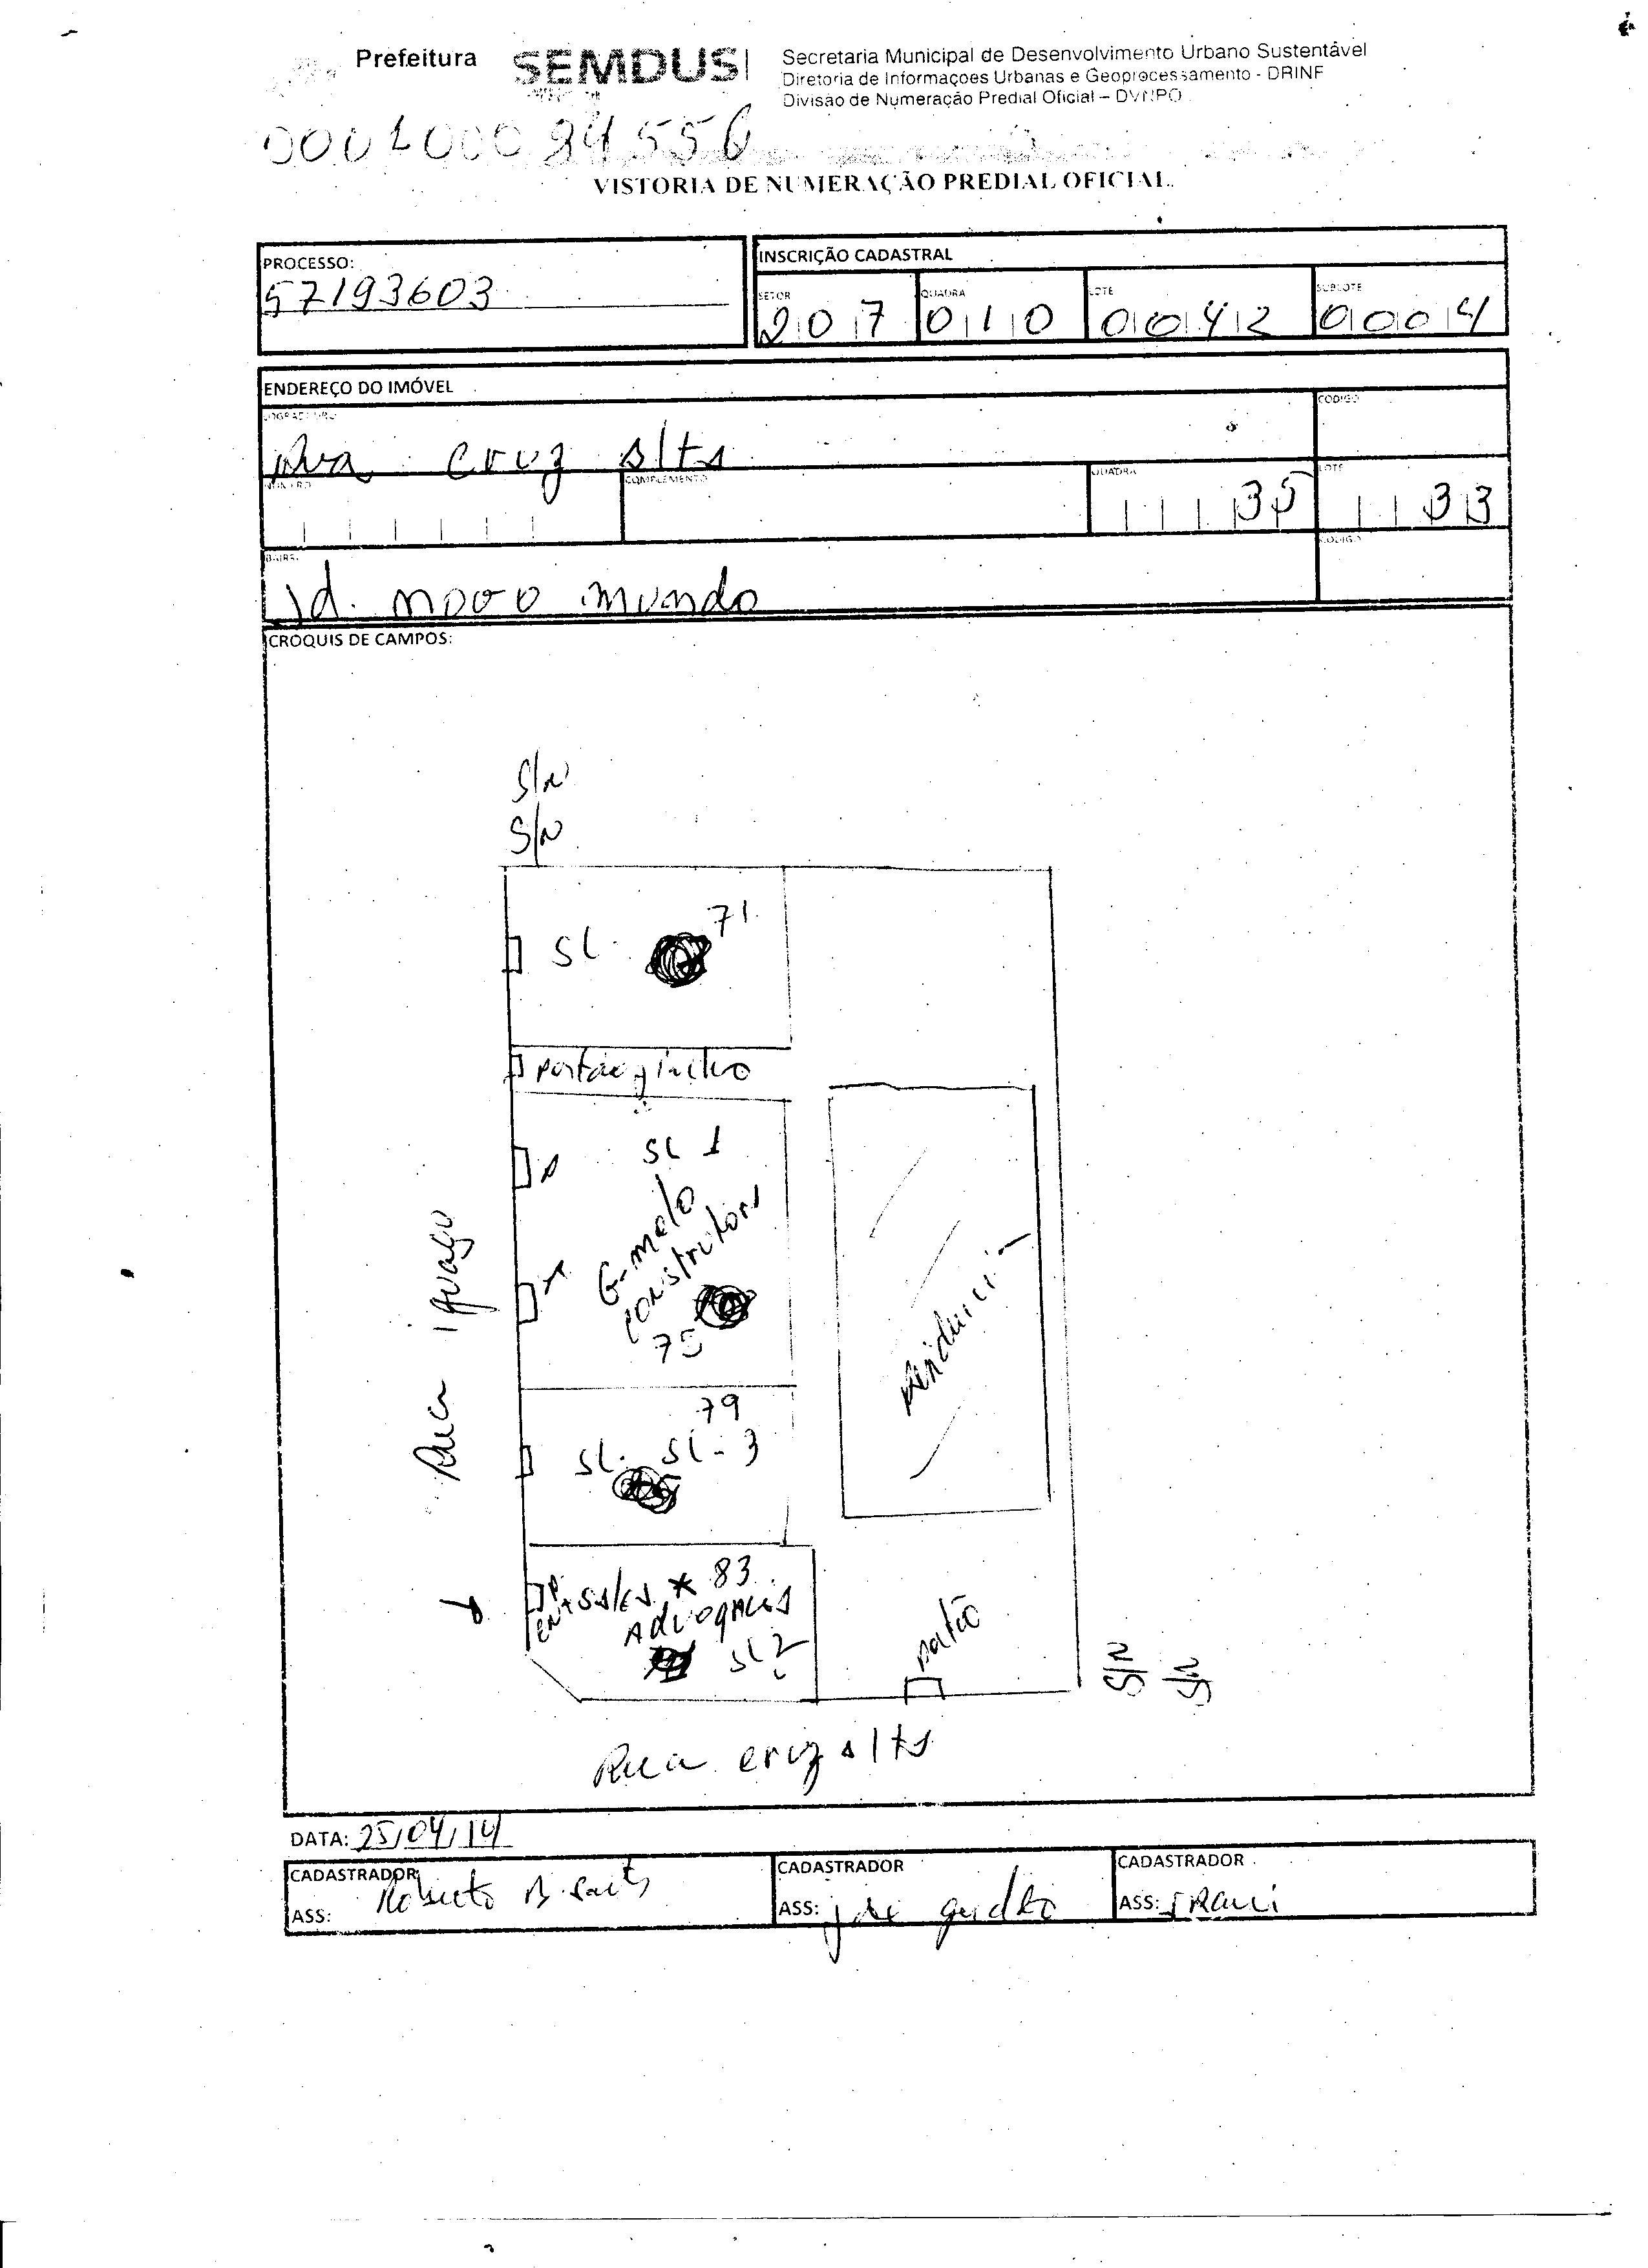 Prefeitura SEMDUS Secretaria Municipal de Desenvolvimento Urbano Sustentável
Diretoria de Informações Urbanas e Geoprocessamento - DRINF
Divisão de Numeração Predial Oficial – DVNPO
VISTORIA DE NUMERAÇÃO PREDIAL OFICIAL
PROCESSO:
57193603
INSCRIÇÃO CADASTRAL
SETOR QUADRA LOTE SUBLOTE
207 010 0042 0004
ENDEREÇO DO IMÓVEL
LOGRADOURO CODIGO
Rua cruz alts
NÚMERO COMPLEMENTO QUADRA LOTE
35 33
BAIRRO CODIGO
Jd. novo mundo
CROQUIS DE CAMPOS:
S/N
S/N
71
SL
SL 1
G-melo
construtora
75
Rua iguaçu
79
SL. SL-3
* 83
Advogacia
SL 2
S/N
S/N
Rua cruz alts
DATA: 25/04/14
CADASTRADOR CADASTRADOR CADASTRADOR
ASS: Roberto B. ASS: ASS: